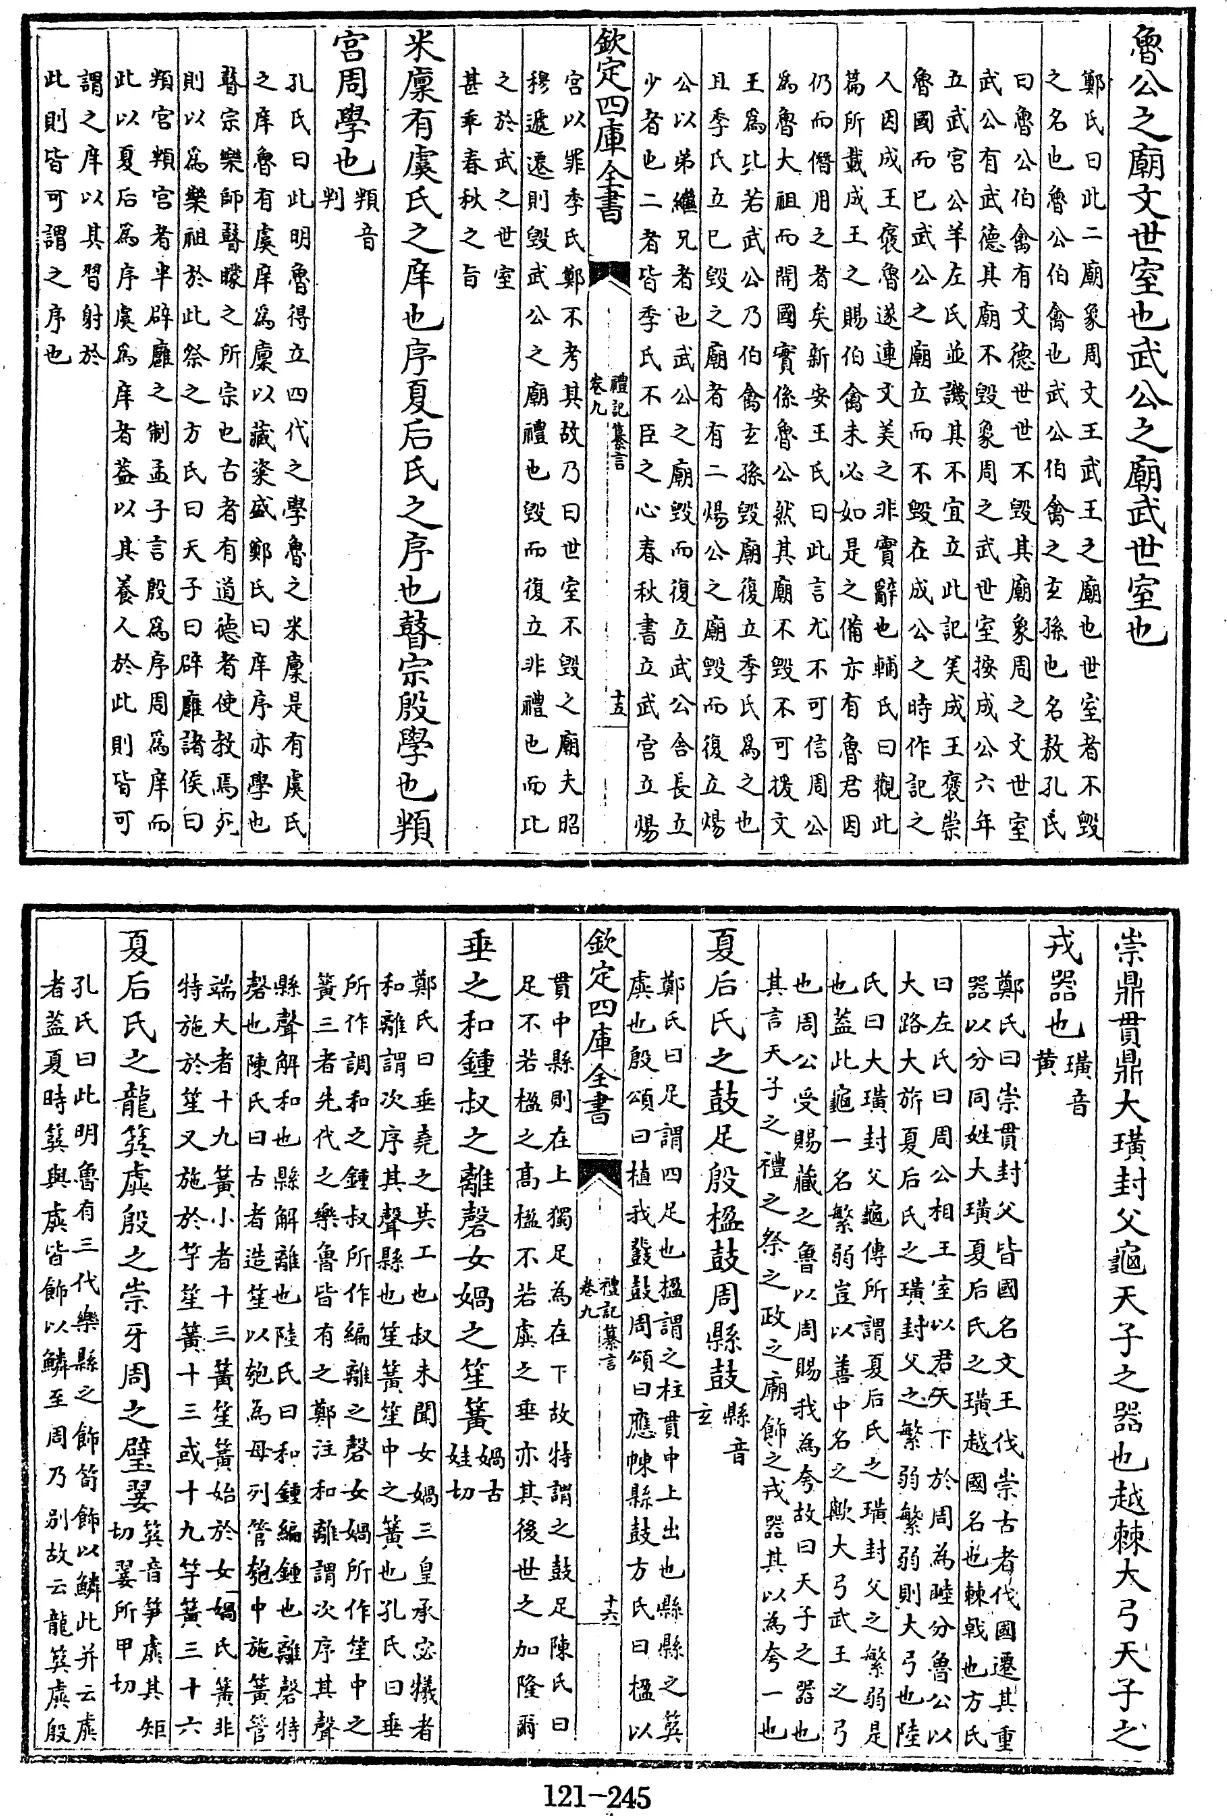 魯公之廟文世室也武公之廟武世室也
鄭氏曰此二廟象周文王武王之廟也世室者不毀
之名也魯公伯禽也武公伯禽之玄孫也名敖孔氏
曰魯公伯禽有文德世世不毀其廟象周之文世室
武公有武德其廟不毀象周之武世室按成公六年
立武宮公羊左氏並譏其不宜立此記美成王褒崇
魯國而已武公之廟立而不毀在成公之時作記之
人因成王褒魯遂連文美之非實辭也輔氏曰觀此
篇所載成王之賜伯禽未必如是之備亦有魯君因
仍而僭用之者矣新安王氏曰此言尤不可信周公
為魯大祖而開國實係魯公然其廟不毀不可援文
王爲比若武公乃伯禽玄孫毀廟復立季氏爲之也
且季氏立已毀之廟者有二煬公之廟毀而復立煬
公以弟繼兄者也武公之廟毀而復立武公舍長立
少者也二者皆季氏不臣之心春秋書立武宮立煬
欽定四庫全書
禮記纂言
卷九
十五
宮以罪季氏鄭不考其故乃曰世室不毀之廟夫昭
穆遞遷則毀武公之廟禮也毀而復立非禮也而比
之於武之世室
甚乖春秋之旨
米廩有虞氏之庠也序夏后氏之序也瞽宗殷學也頖
宮周學也
頖音
判
孔氏曰此明魯得立四代之學魯之米廩是有虞氏
之庠魯有虞庠爲廩以藏粢盛鄭氏曰庠序亦學也
瞽宗樂師瞽矇之所宗也古者有道德者使教焉死
則以爲樂祖於此祭之方氏曰天子曰辟廱諸侯曰
頖宮頖宮者半辟廱之制孟子言殷爲序周爲庠而
此以夏后爲序虞爲庠者蓋以其養人於此則皆可
謂之庠以其習射於
此則皆可謂之序也
崇鼎貫鼎大璜封父龜天子之器也越棘大弓天子之
戎器也
璜音
黄
鄭氏曰崇貫封父皆國名文王伐崇古者伐國遷其重
器以分同姓大璜夏后氏之璜越國名也棘戟也方氏
曰左氏曰周公相王室以君天下於周為睦分魯公以
大路大旂夏后氏之璜封父之繁弱繁弱則大弓也陸
氏曰大璜封父龜傳所謂夏后氏之璜封父之繁弱是
也蓋此龜一名繁弱豈以善中名之歟大弓武王之弓
也周公受賜藏之魯以周賜我為夸故曰天子之器也
其言天子之禮之祭之政之廟飾之戎器其以為夸一也
夏后氏之鼓足殷楹鼓周縣鼓
縣音
玄
鄭氏曰足謂四足也楹謂之柱貫中上出也縣縣之簨
虡也殷頌曰植我鼗鼓周頌曰應朄縣鼓方氏曰楹以
欽定四庫全書
禮記纂言
卷九
十六
貫中縣則在上獨足為在下故特謂之鼓足陳氏曰
足不若楹之高楹不若虡之垂亦其後世之加隆爾
垂之和鍾叔之離磬女媧之笙簧
媧古
娃切
鄭氏曰垂堯之共工也叔未聞女媧三皇承宓犧者
和離謂次序其聲縣也笙簧笙中之簧也孔氏曰垂
所作調和之鍾叔所作編離之磬女媧所作笙中之
簧三者先代之樂魯皆有之鄭注和離謂次序其聲
縣聲解和也縣解離也陸氏曰和鍾編鍾也離磬特
磬也陳氏曰古者造笙以匏為母列管匏中施簧管
端大者十九簧小者十三簧笙簧始於女媧氏簧非
特施於笙又施於竽笙簧十三或十九竽簧三十六
夏后氏之龍簨虡殷之崇牙周之璧翣
簨音笋虡其矩
切翣所甲切
孔氏曰此明魯有三代樂縣之飾筍飾以鱗此并云虡
者蓋夏時簨與虡皆飾以鱗至周乃別故云龍簨虡殷
121-245